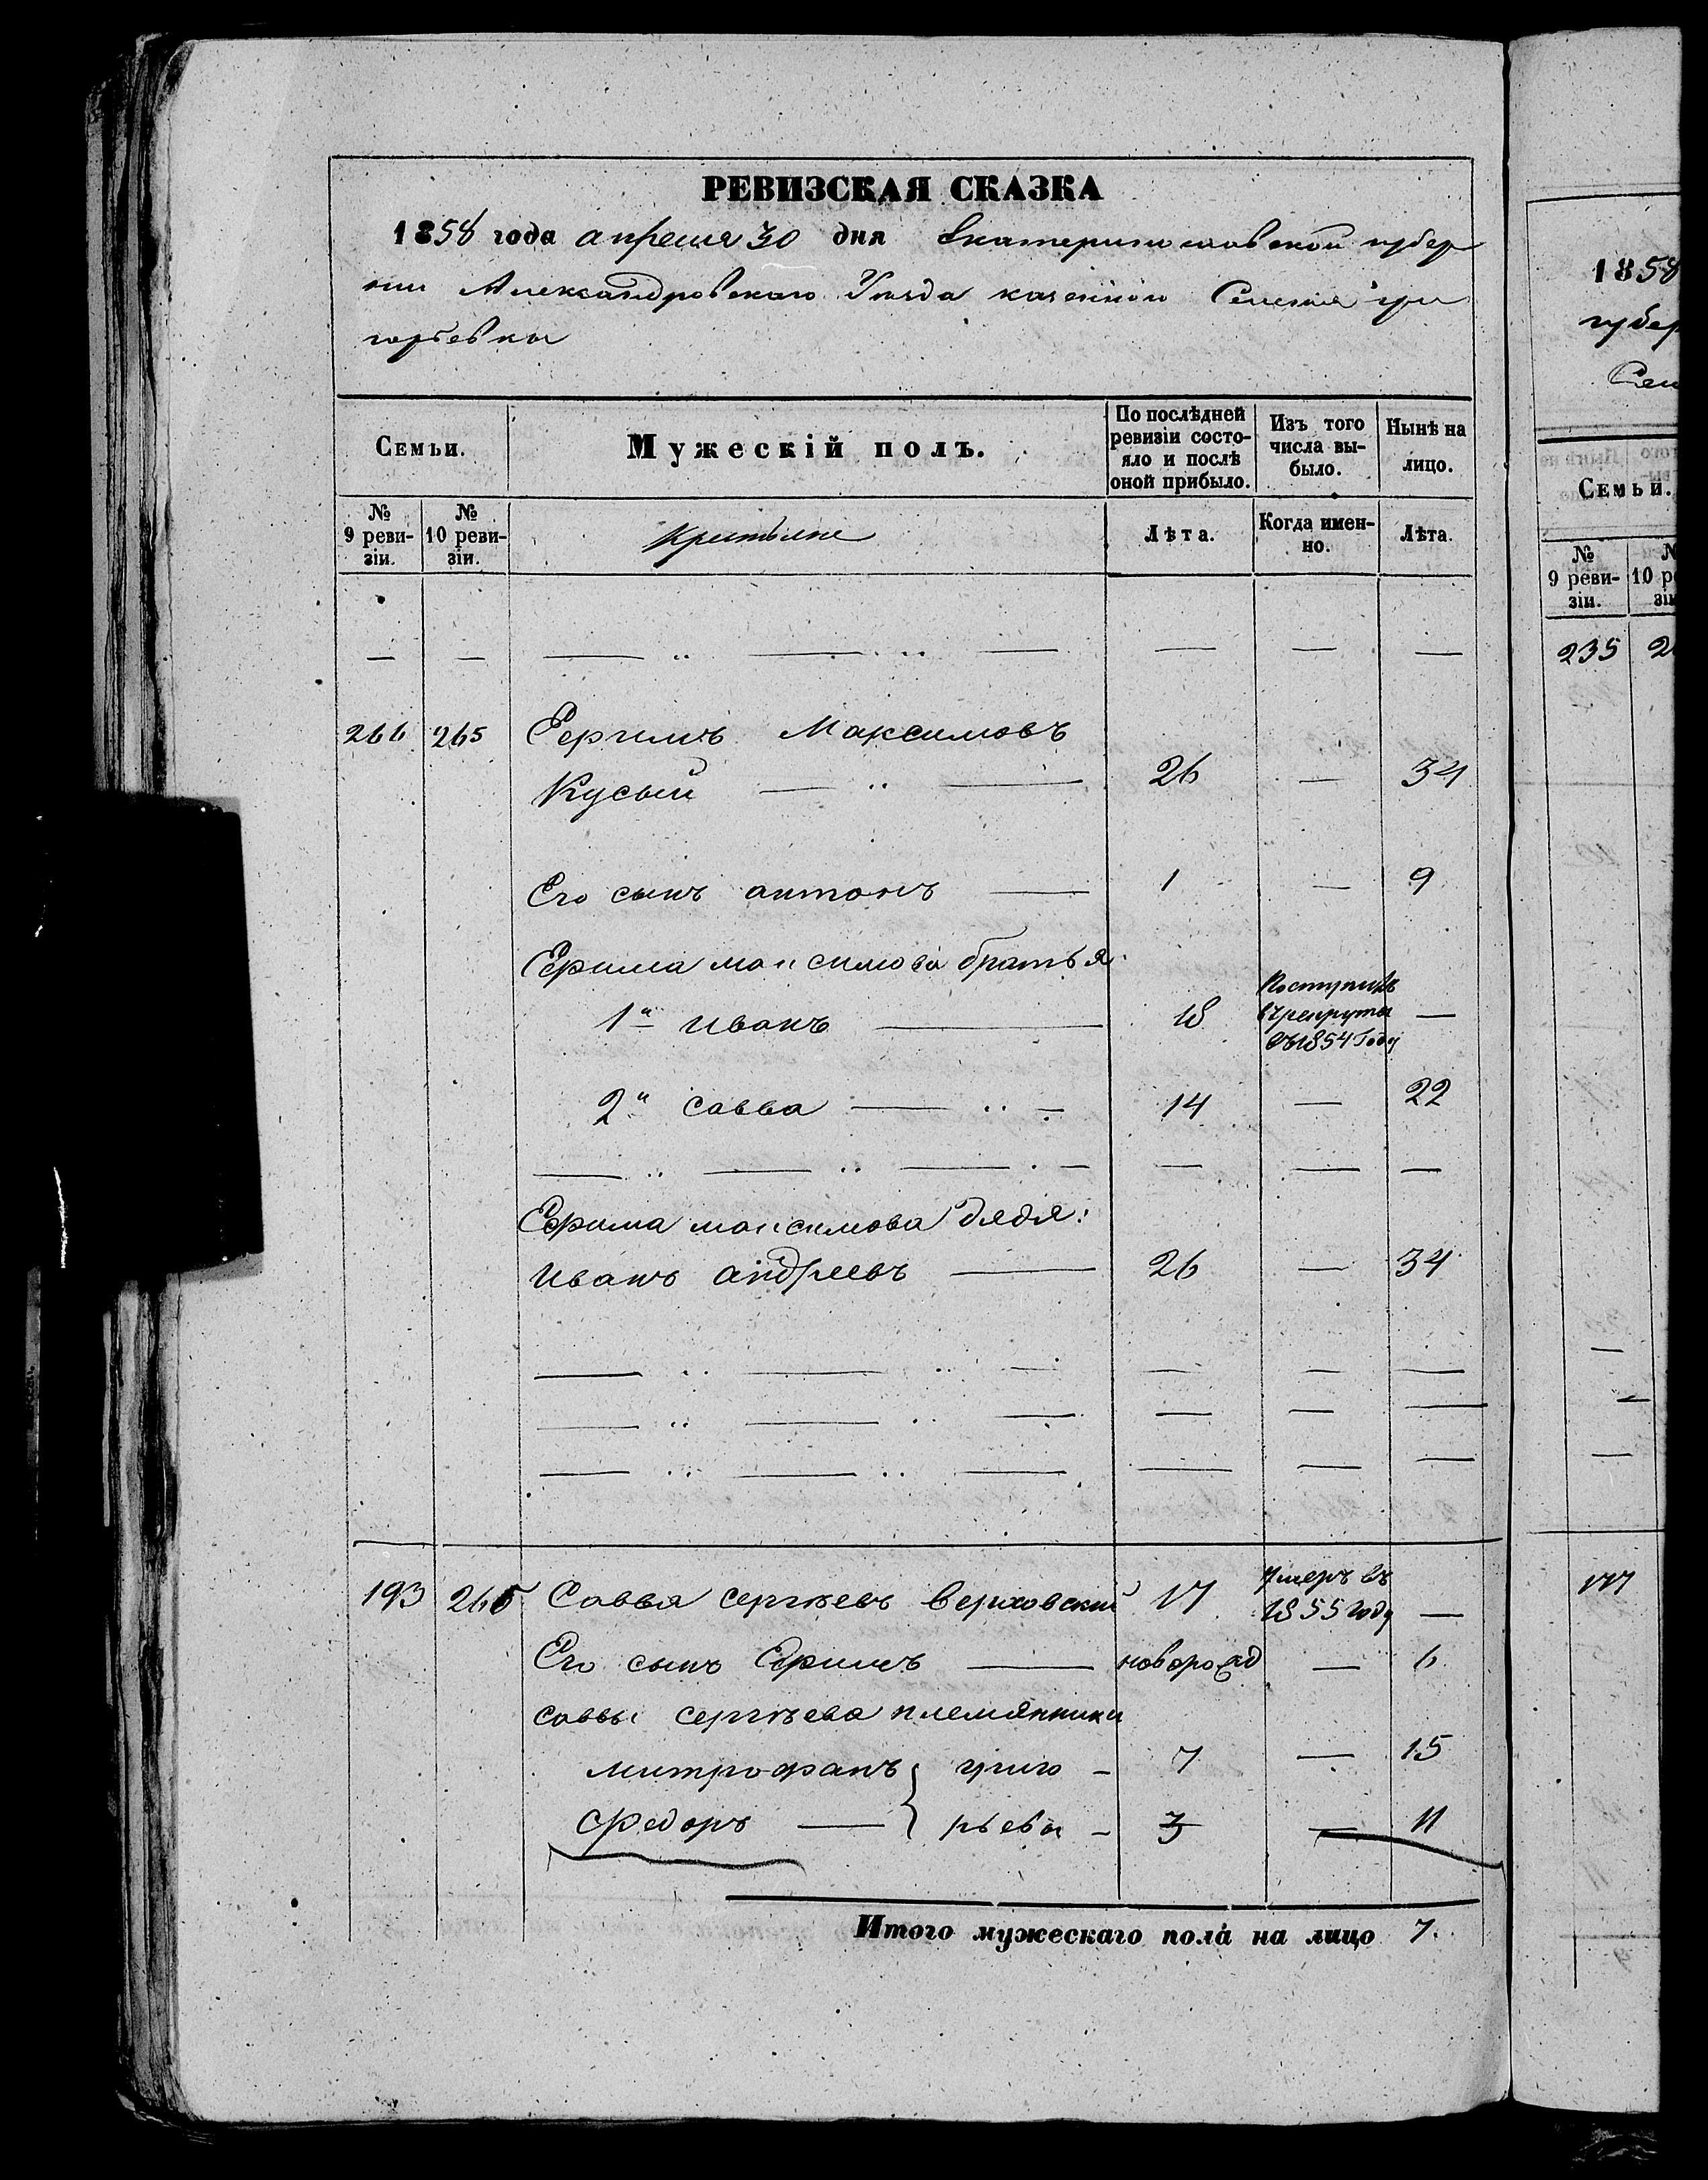 РЕВИЗСКАЯ СКАЗКА
1858 года апреля 30 дня Екатеринославской губер
нии Александровскаго Уезда казенной Селения Гри
горьевки
Семьи.
Мужескій полъ.
По послѣдней ревизіи состо-
яло и послѣ оной прибыло.
Изъ того числа вы-
было.
Нынѣ на лицо.
№ 9 реви-
зіи.
№ 10 реви-
зіи.
Лѣта.
Когда имен-
но.
Лѣта.
266 265 Ефимъ Максимовъ
Кусый 26 — 34
Его сынъ антонъ 1 — 9
Ефима максимова братья:
1й иванъ 18 Поступилъ в рекруты въ 1854 Году —
2й савва 14 — 22
Ефима максимова дядя:
иванъ андреевъ 26 — 34
193 266 Савва сергѣевъ Верховский 17 Умеръ въ 1855 Году —
Его сынъ Ефимъ новорожд — 6
саввы сергѣева племянники
митрофанъ } григо 7 — 15
Федоръ } рьевы 3 — 11
Итого мужескаго пола на лицо 7.
1858
губер
Сел
Семьи.
№ 9 реви-
зіи.
235
177